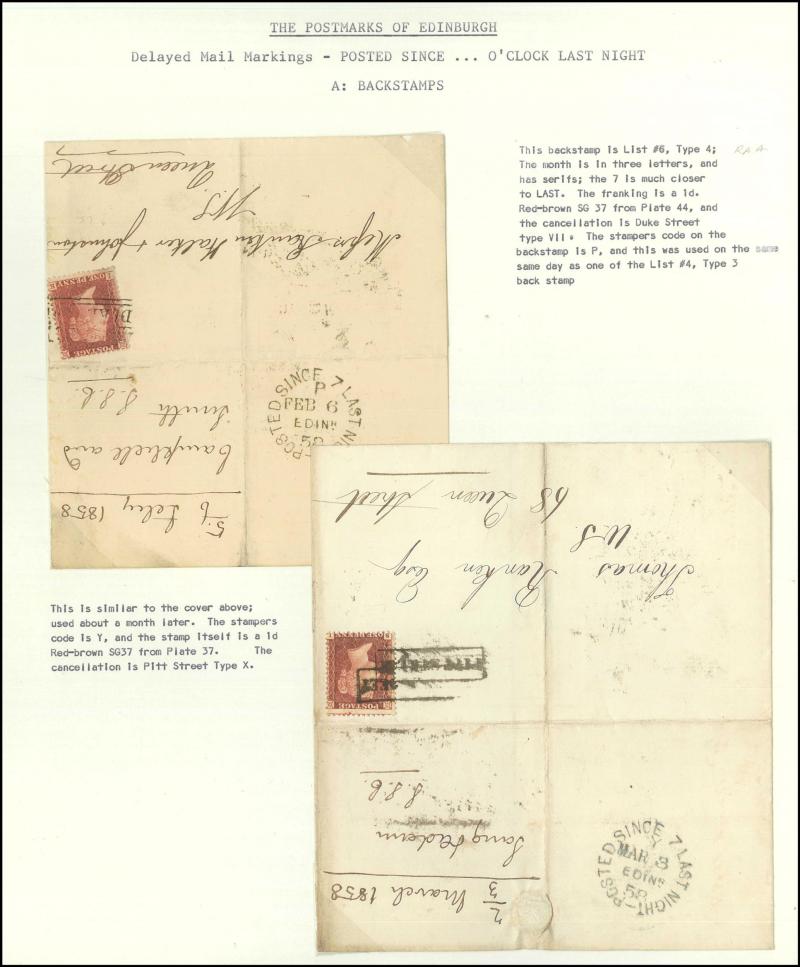 THE POSTMARKS OF EDINBURGH
Delayed Mail Markings - POSTED SINCE ... O'CLOCK LAST NIGHT
A: BACKSTAMPS
This backstamp is List #6, Type 4;
The month is in three letters, and
has serifs; the 7 is much closer
to LAST. The franking is a 1d.
Red-brown SG 37 from Plate 44, and
the cancellation is Duke Street
type VII. The stampers code on the
backstamp is P, and this was used on the same
same day as one of the List #4, Type 3
back stamp
Queen Street
W.S.
Messrs Ranken Walker & Johnston
POSTAGE
ONE PENNY
POSTED SINCE 7 LAST NIGHT
P
FEB 6
EDINR
58
5/6 Feby 1858
Campbell and
Smith
S.S.C.
This is similar to the cover above;
used about a month later. The stampers
code is Y, and the stamp itself is a 1d
Red-brown SG37 from Plate 37. The
cancellation is Pitt Street Type X.
Thomas Ranken Esq
W.S.
68 Queen Street
POSTAGE
PITT STREET
2/3 March 1858
S.S.C.
POSTED SINCE 7 LAST NIGHT
Y
MAR 3
EDINR
58